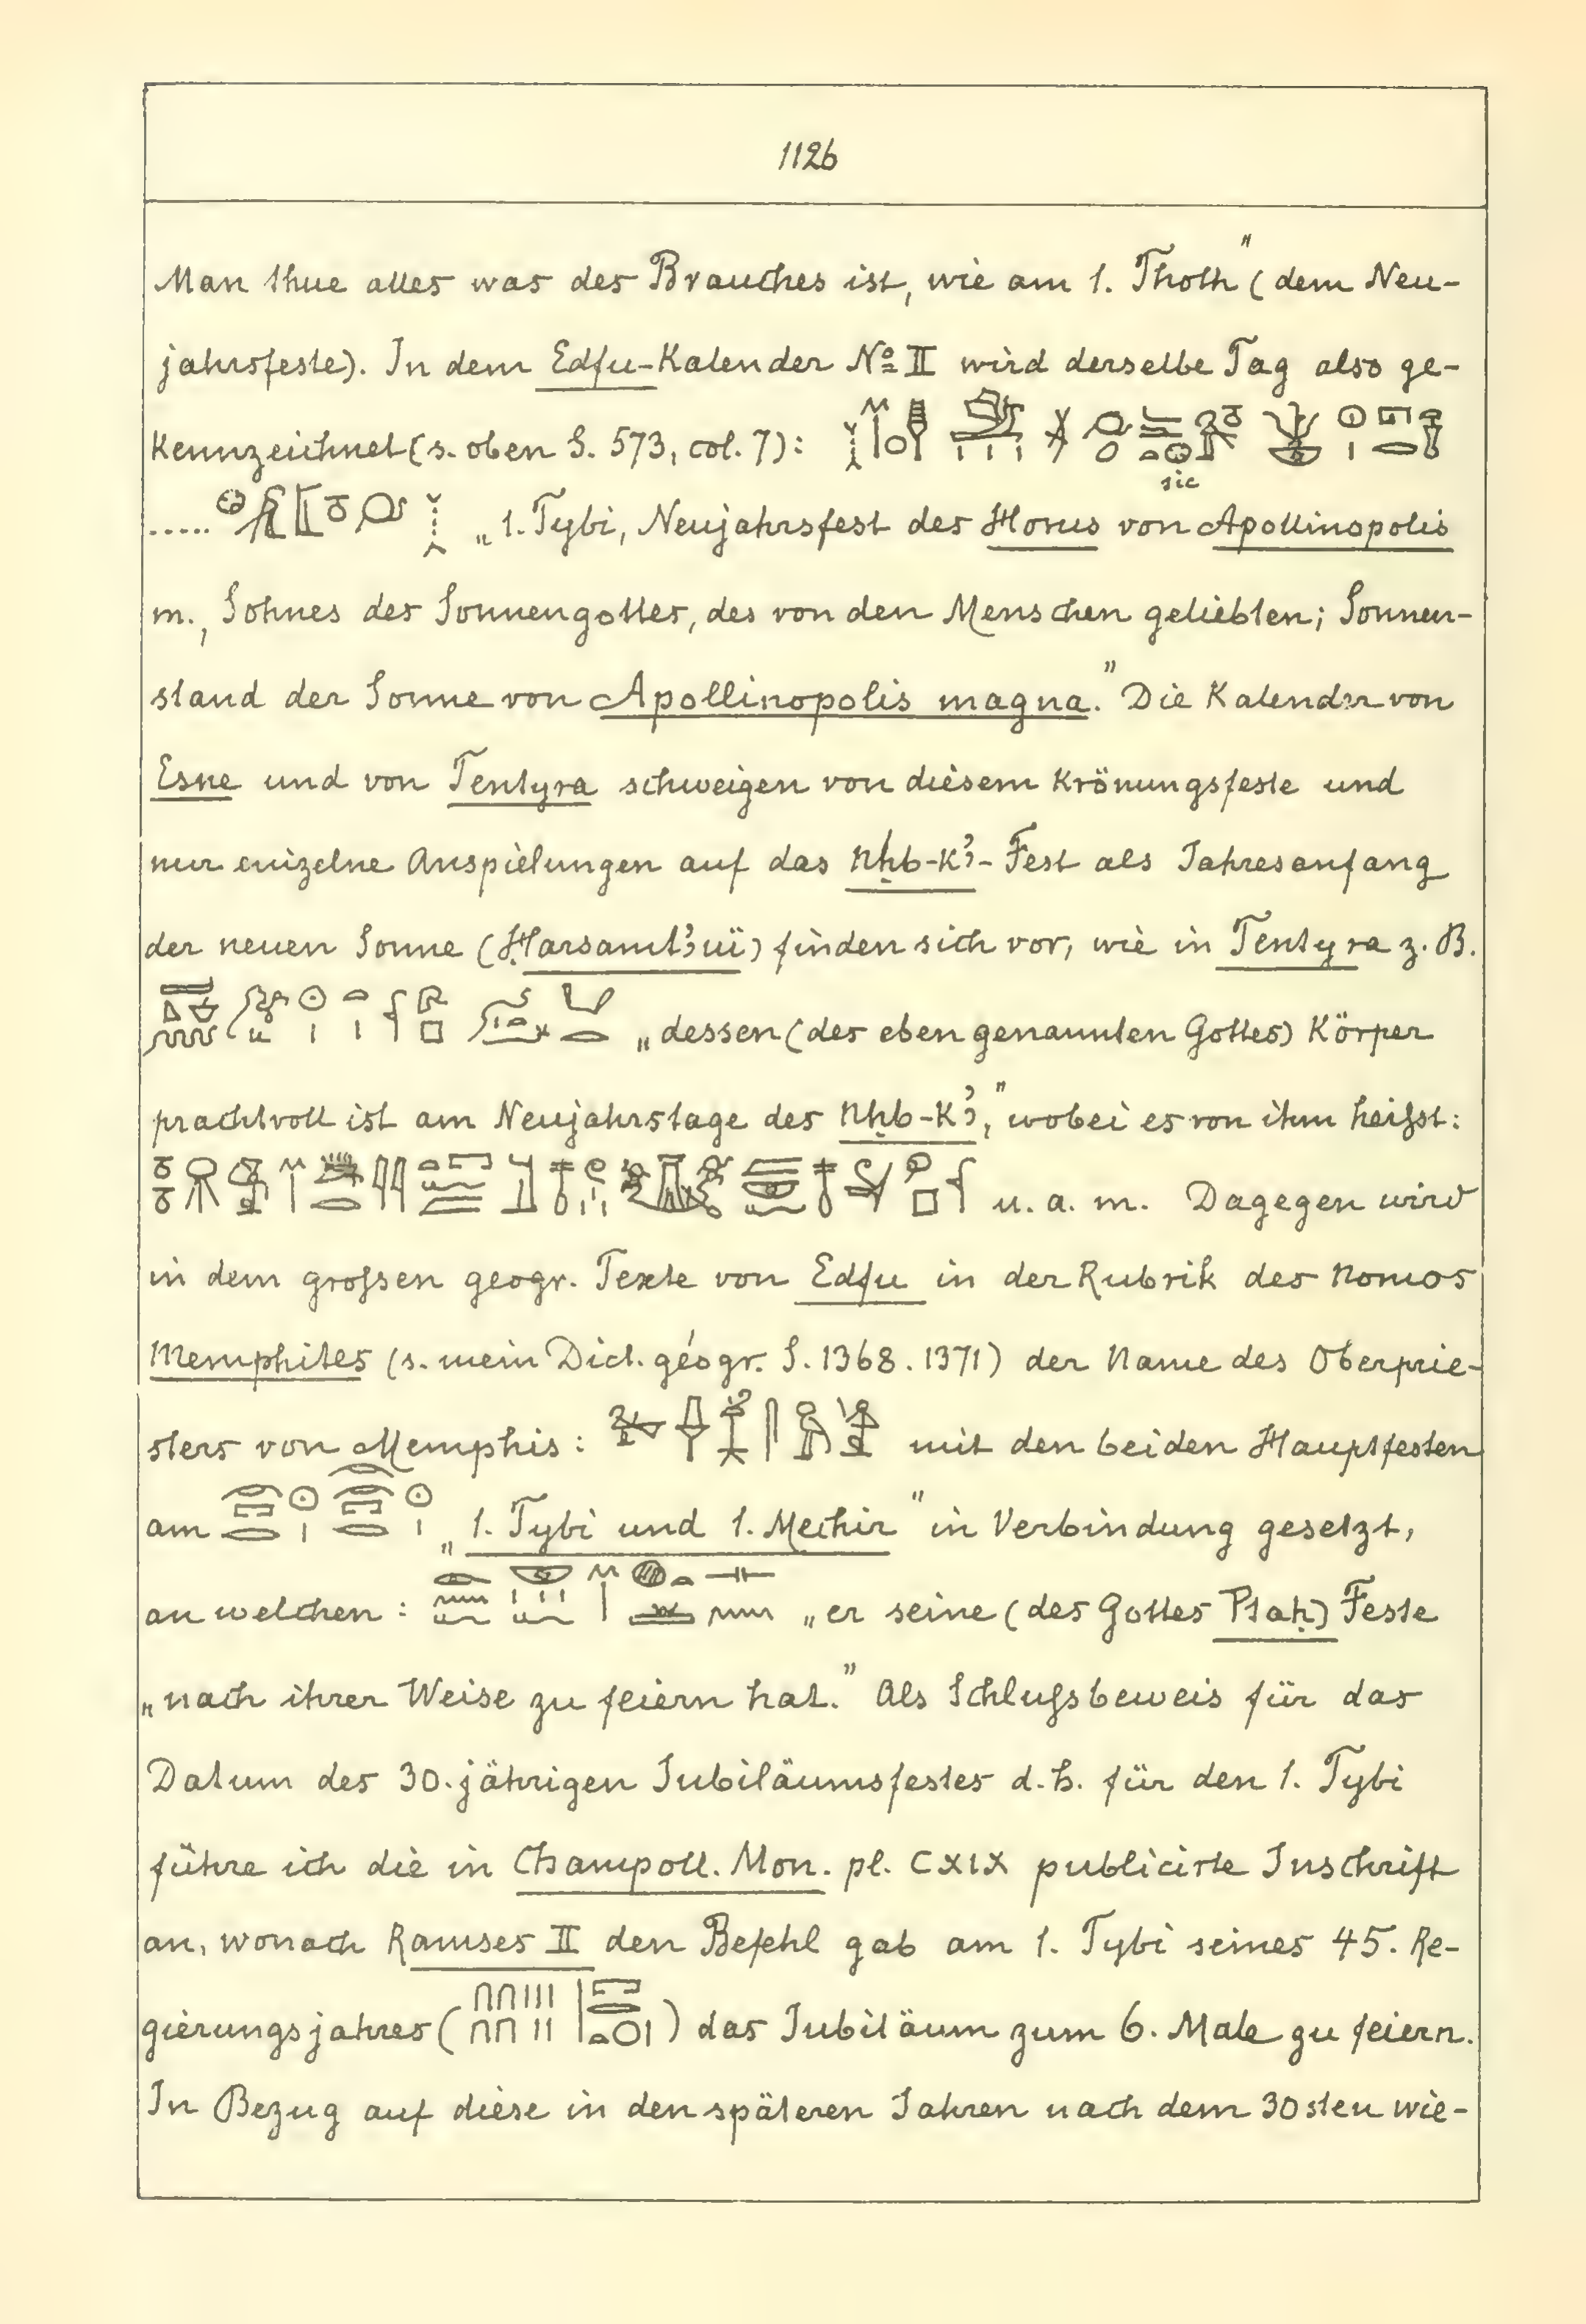 1126
Man thue alles was des Brauches ist, wie am 1. Thoth" (dem Neu-
jahrsfeste). In dem Edfu-Kalender No II wird derselbe Tag also ge-
kennzeichnet (s. oben S. 573, col. 7):
sic
..... „1. Tybi, Neujahrsfest des Horus von Apollinopolis
m., Sohnes des Sonnengottes, des von den Menschen geliebten; Sonnen-
stand der Sonne von Apollinopolis magna." Die Kalender von
Esne und von Tentyra schweigen von diesem Krönungsfeste und
nur einzelne Anspielungen auf das Nḥb-kꜣ-Fest als Jahresanfang
der neuen Sonne (Ḥarsamtꜣuï) finden sich vor, wie in Tentyra z. B.
„dessen (des eben genannten Gottes) Körper
prachtvoll ist am Neujahrstage des Nḥb-kꜣ," wobei es von ihm heißt:
u. a. m. Dagegen wird
in dem großen geogr. Texte von Edfu in der Rubrik des Nomos
Memphites (s. mein Dict. géogr. S. 1368. 1371) der Name des Oberprie-
sters von Memphis: mit den beiden Hauptfesten
am „1. Tybi und 1. Mechir" in Verbindung gesetzt,
an welchen: „er seine (des Gottes Ptaḥ) Feste
„nach ihrer Weise zu feiern hat." Als Schlußbeweis für das
Datum des 30.jährigen Jubiläumsfestes d. h. für den 1. Tybi
führe ich die in Champoll. Mon. pl. CXIX publicirte Inschrift
an, wonach Ramses II den Befehl gab am 1. Tybi seines 45. Re-
gierungsjahres ( ) das Jubiläum zum 6. Male zu feiern.
In Bezug auf diese in den späteren Jahren nach dem 30sten wie-